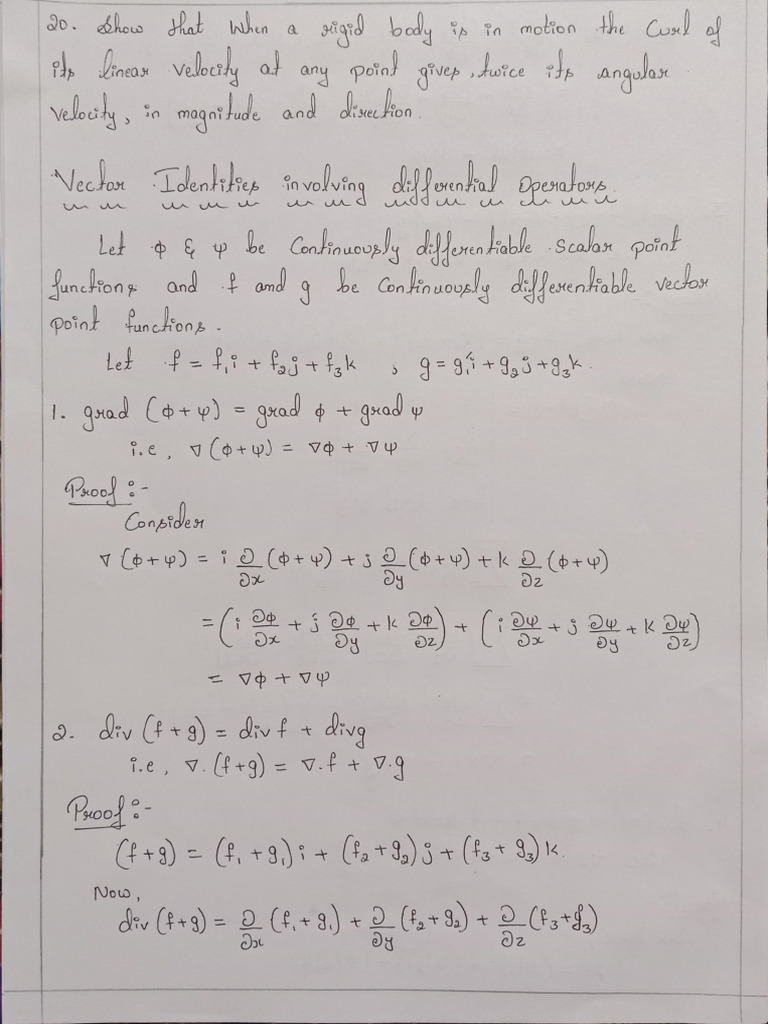 20. Show that when a rigid body is in motion the Curl of
its linear velocity at any point gives, twice its angular
velocity, in magnitude and direction.
Vector Identities involving differential Operators.
Let φ & ψ be Continuously differentiable scalar point
functions and f and g be Continuously differentiable vector
point functions.
Let f = f₁i + f₂j + f₃k , g = g₁i + g₂j + g₃k.
1. grad (φ + ψ) = grad φ + grad ψ
i.e, ∇(φ + ψ) = ∇φ + ∇ψ
Proof :-
Consider
∇(φ + ψ) = i ∂/∂x (φ + ψ) + j ∂/∂y (φ + ψ) + k ∂/∂z (φ + ψ)
= (i ∂φ/∂x + j ∂φ/∂y + k ∂φ/∂z) + (i ∂ψ/∂x + j ∂ψ/∂y + k ∂ψ/∂z)
= ∇φ + ∇ψ
2. div (f + g) = div f + div g
i.e, ∇.(f + g) = ∇.f + ∇.g
Proof :-
(f + g) = (f₁ + g₁)i + (f₂ + g₂)j + (f₃ + g₃)k.
Now,
div (f + g) = ∂/∂x (f₁ + g₁) + ∂/∂y (f₂ + g₂) + ∂/∂z (f₃ + g₃)